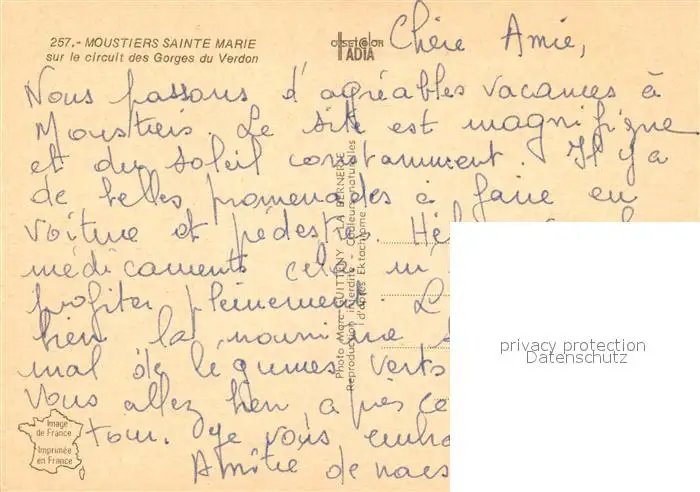 257.- MOUSTIERS SAINTE MARIE
sur le circuit des Gorges du Verdon
OFFSET COLOR
IADIA
Chère Amie,
Nous passons d'agréables vacances à
Moustiers. Le site est magnifique
et du soleil constamment. Il y a
de belles promenades à faire en
voiture et pédestre. Hél
médicaments cela m
profiter pleinement. L
bien la nourriture
mal de légumes verts
Vous allez bien, après ce
tour. Je vous embra
Amitié de
Photo Marc GUITTENY LA BERNERIE
Reproduction interdite - Couleurs naturelles
d'après Ektachrome
Image
de France
Imprimée
en France
privacy protection
Datenschutz